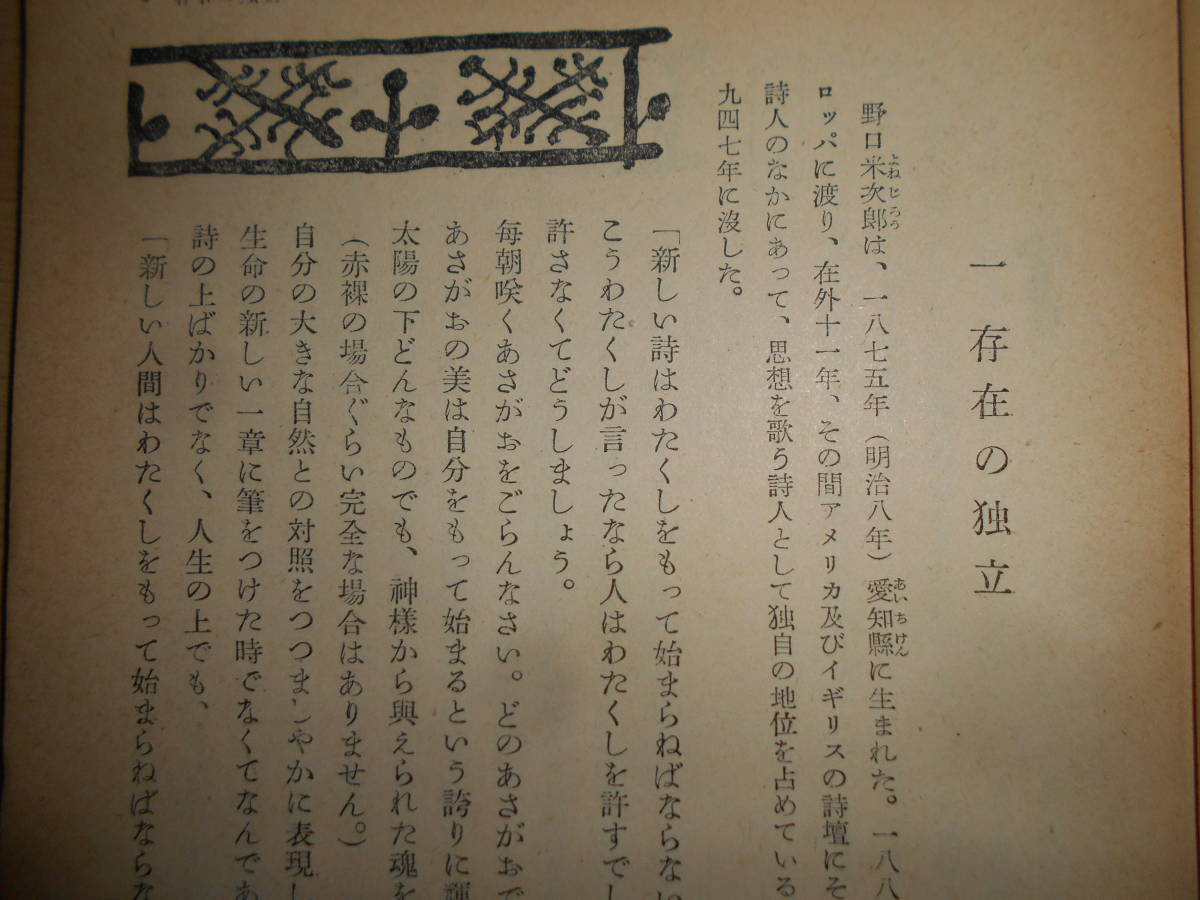 一 存在の独立
野口米次郎は、一八七五年（明治八年）愛知縣に生まれた。一八八
よねじろう
あいちけん
ロッパに渡り、在外十一年、その間アメリカ及びイギリスの詩壇にそ
詩人のなかにあって、思想を歌う詩人として独自の地位を占めている
九四七年に沒した。
「新しい詩はわたくしをもって始まらねばならない
こうわたくしが言ったなら人はわたくしを許すでし
許さなくてどうしましょう。
毎朝咲くあさがおをごらんなさい。どのあさがおで
あさがおの美は自分をもって始まるという誇りに輝
太陽の下どんなものでも、神様から與えられた魂を
（赤裸の場合ぐらい完全な場合はありません。）
自分の大きな自然との対照をつつましやかに表現し
生命の新しい一章に筆をつけた時でなくてなんであ
詩の上ばかりでなく、人生の上でも、
「新しい人間はわたくしをもって始まらねばならな